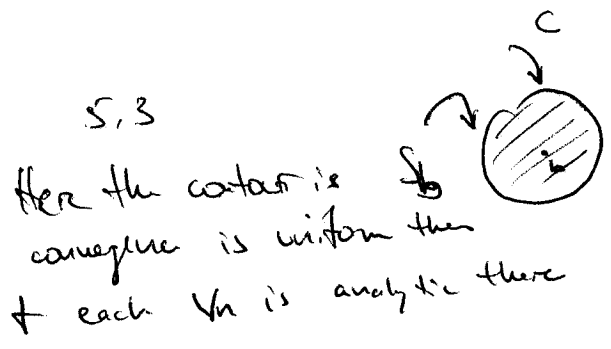 C
5.3
Here the contour is
convergence is uniform then
+ each Vn is analytic there